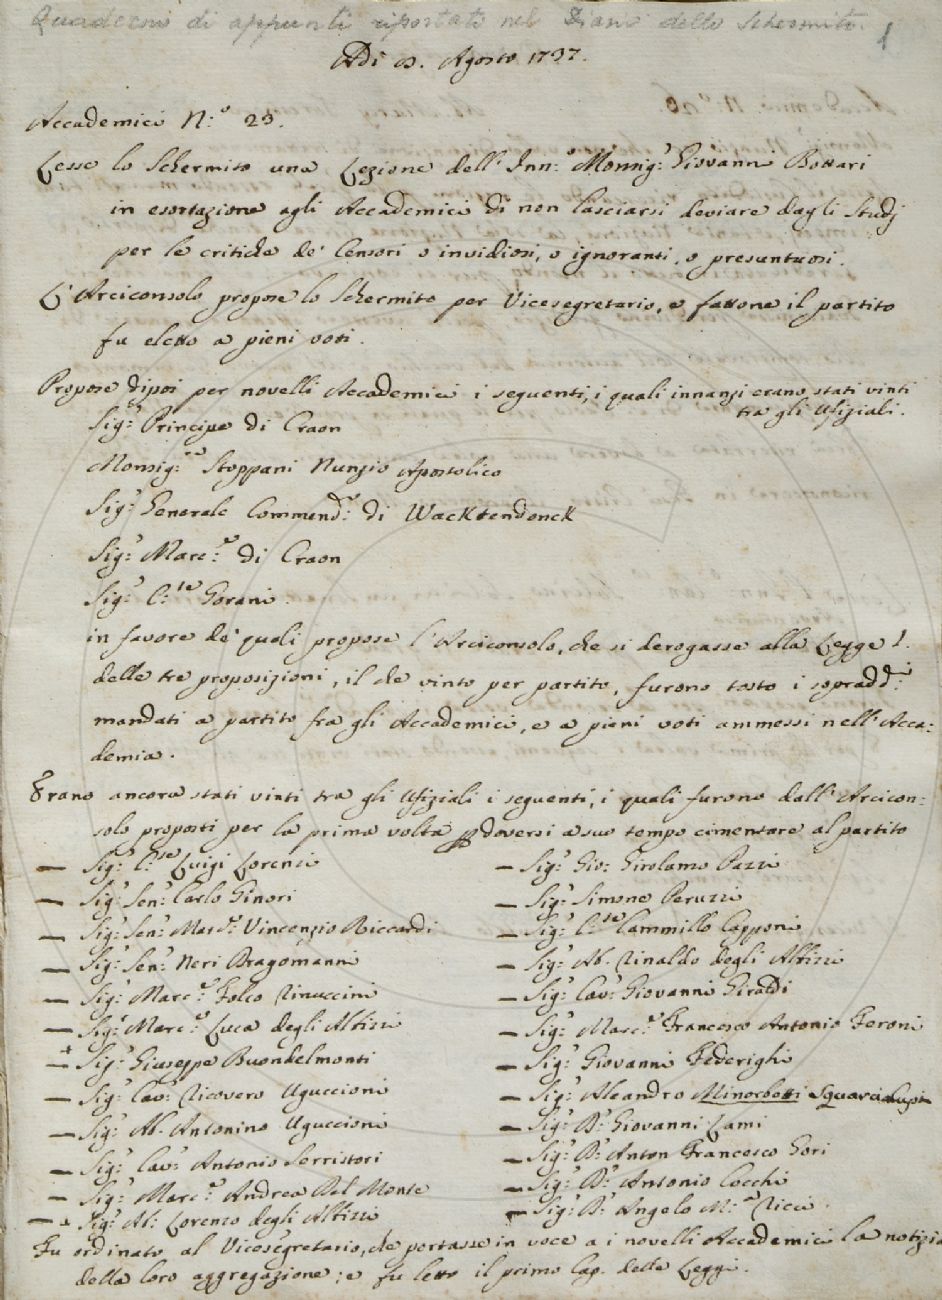 Quaderno di appunti riportati nel Diario dello Schermito.
1
Adì 8. Agosto 1737.
Accademici N.° 23.
Lesse lo Schermito una Lezione dell' Inn.° Monsig.r Giovanni Bottari
in esortazione agli Accademici di non lasciarsi deviare dagli Studj
per le critiche de' Censori o invidiosi, o ignoranti, o presuntuosi.
L'Arciconsolo propose lo Schermito per Vicesegretario, e fattone il partito
fu eletto a pieni voti.
Propose dipoi per novelli Accademici i seguenti, i quali innanzi erano stati vinti
tra gli Ufiziali.
Sig.r Principe di Craon
Monsig.re Stoppani Nunzio Apostolico
Sig.r Generale Commend.r di Wacktendonck
Sig.r Marc.e di Craon
Sig.r C.te Gorani
in favore de' quali propose l'Arciconsolo, che si derogasse alla Legge
delle tre proposizioni, il che vinto per partito, furono tosto i sopradd.i
mandati a partito fra gli Accademici, e a pieni voti ammessi nell'Acca=
demia.
Erano ancora stati vinti tra gli Ufiziali i seguenti, i quali furono dall'Arcicon=
solo proposti per la prima volta p doversi a suo tempo cimentare al partito
— Sig.r C.te Luigi Lorenzi
— Sig.r Sen.r Carlo Ginori
— Sig.r Sen.r Mar.e Vincenzio Riccardi
— Sig.r Sen.r Neri Dragomanni
— Sig.r Marc.e Folco Rinuccini
— Sig.r Marc.e Luca degli Albizzi
— Sig.r Giuseppe Buondelmonti
— Sig.r Cav.r Ricovero Uguccioni
— Sig.r Ab. Antonino Uguccioni
— Sig.r Cav.r Antonio Serristori
— Sig.r Marc.e Andrea Del Monte
— Sig.r Ab. Lorenzo degli Albizzi
— Sig.r Gio: Girolamo Pazzi
— Sig.r Simone Peruzzi
— Sig.r C.te Cammillo Capponi
— Sig.r Ab. Rinaldo degli Albizzi
— Sig.r Cav.r Giovanni Giraldi
— Sig.r Marc.e Francesco Antonio Feroni
— Sig.r Giovanni Federighi
— Sig.r Aleandro Minorbetti Squarcialupi
— Sig.r D.r Giovanni Lami
— Sig.r D.r Anton Francesco Gori
— Sig.r D.r Antonio Cocchi
— Sig.r D.r Angelo M.a Ricci
Fu ordinato al Vicesegretario, che portasse in voce a i novelli Accademici la notizia
della loro aggregazione; e fu letto il primo Cap. delle Leggi.